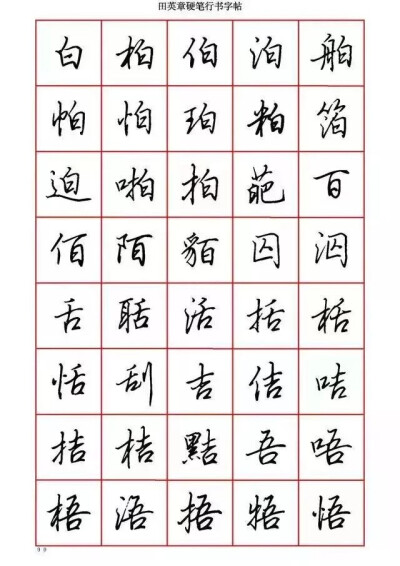 田英章硬笔行书字帖
白 柏 伯 泊 舶
帕 怕 珀 粕 箔
迫 啪 拍 葩 百
佰 陌 貊 囚 泅
舌 聒 活 括 栝
恬 刮 吉 佶 咭
拮 桔 黠 吾 唔
梧 浯 捂 牾 悟